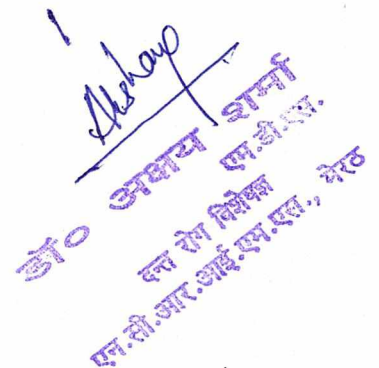 Akshay
डॉ० अक्षय शर्मा
एम.डी.एस.
दन्त रोग विशेषज्ञ
एन.सी.आर.आई.एम.एस., मेरठ